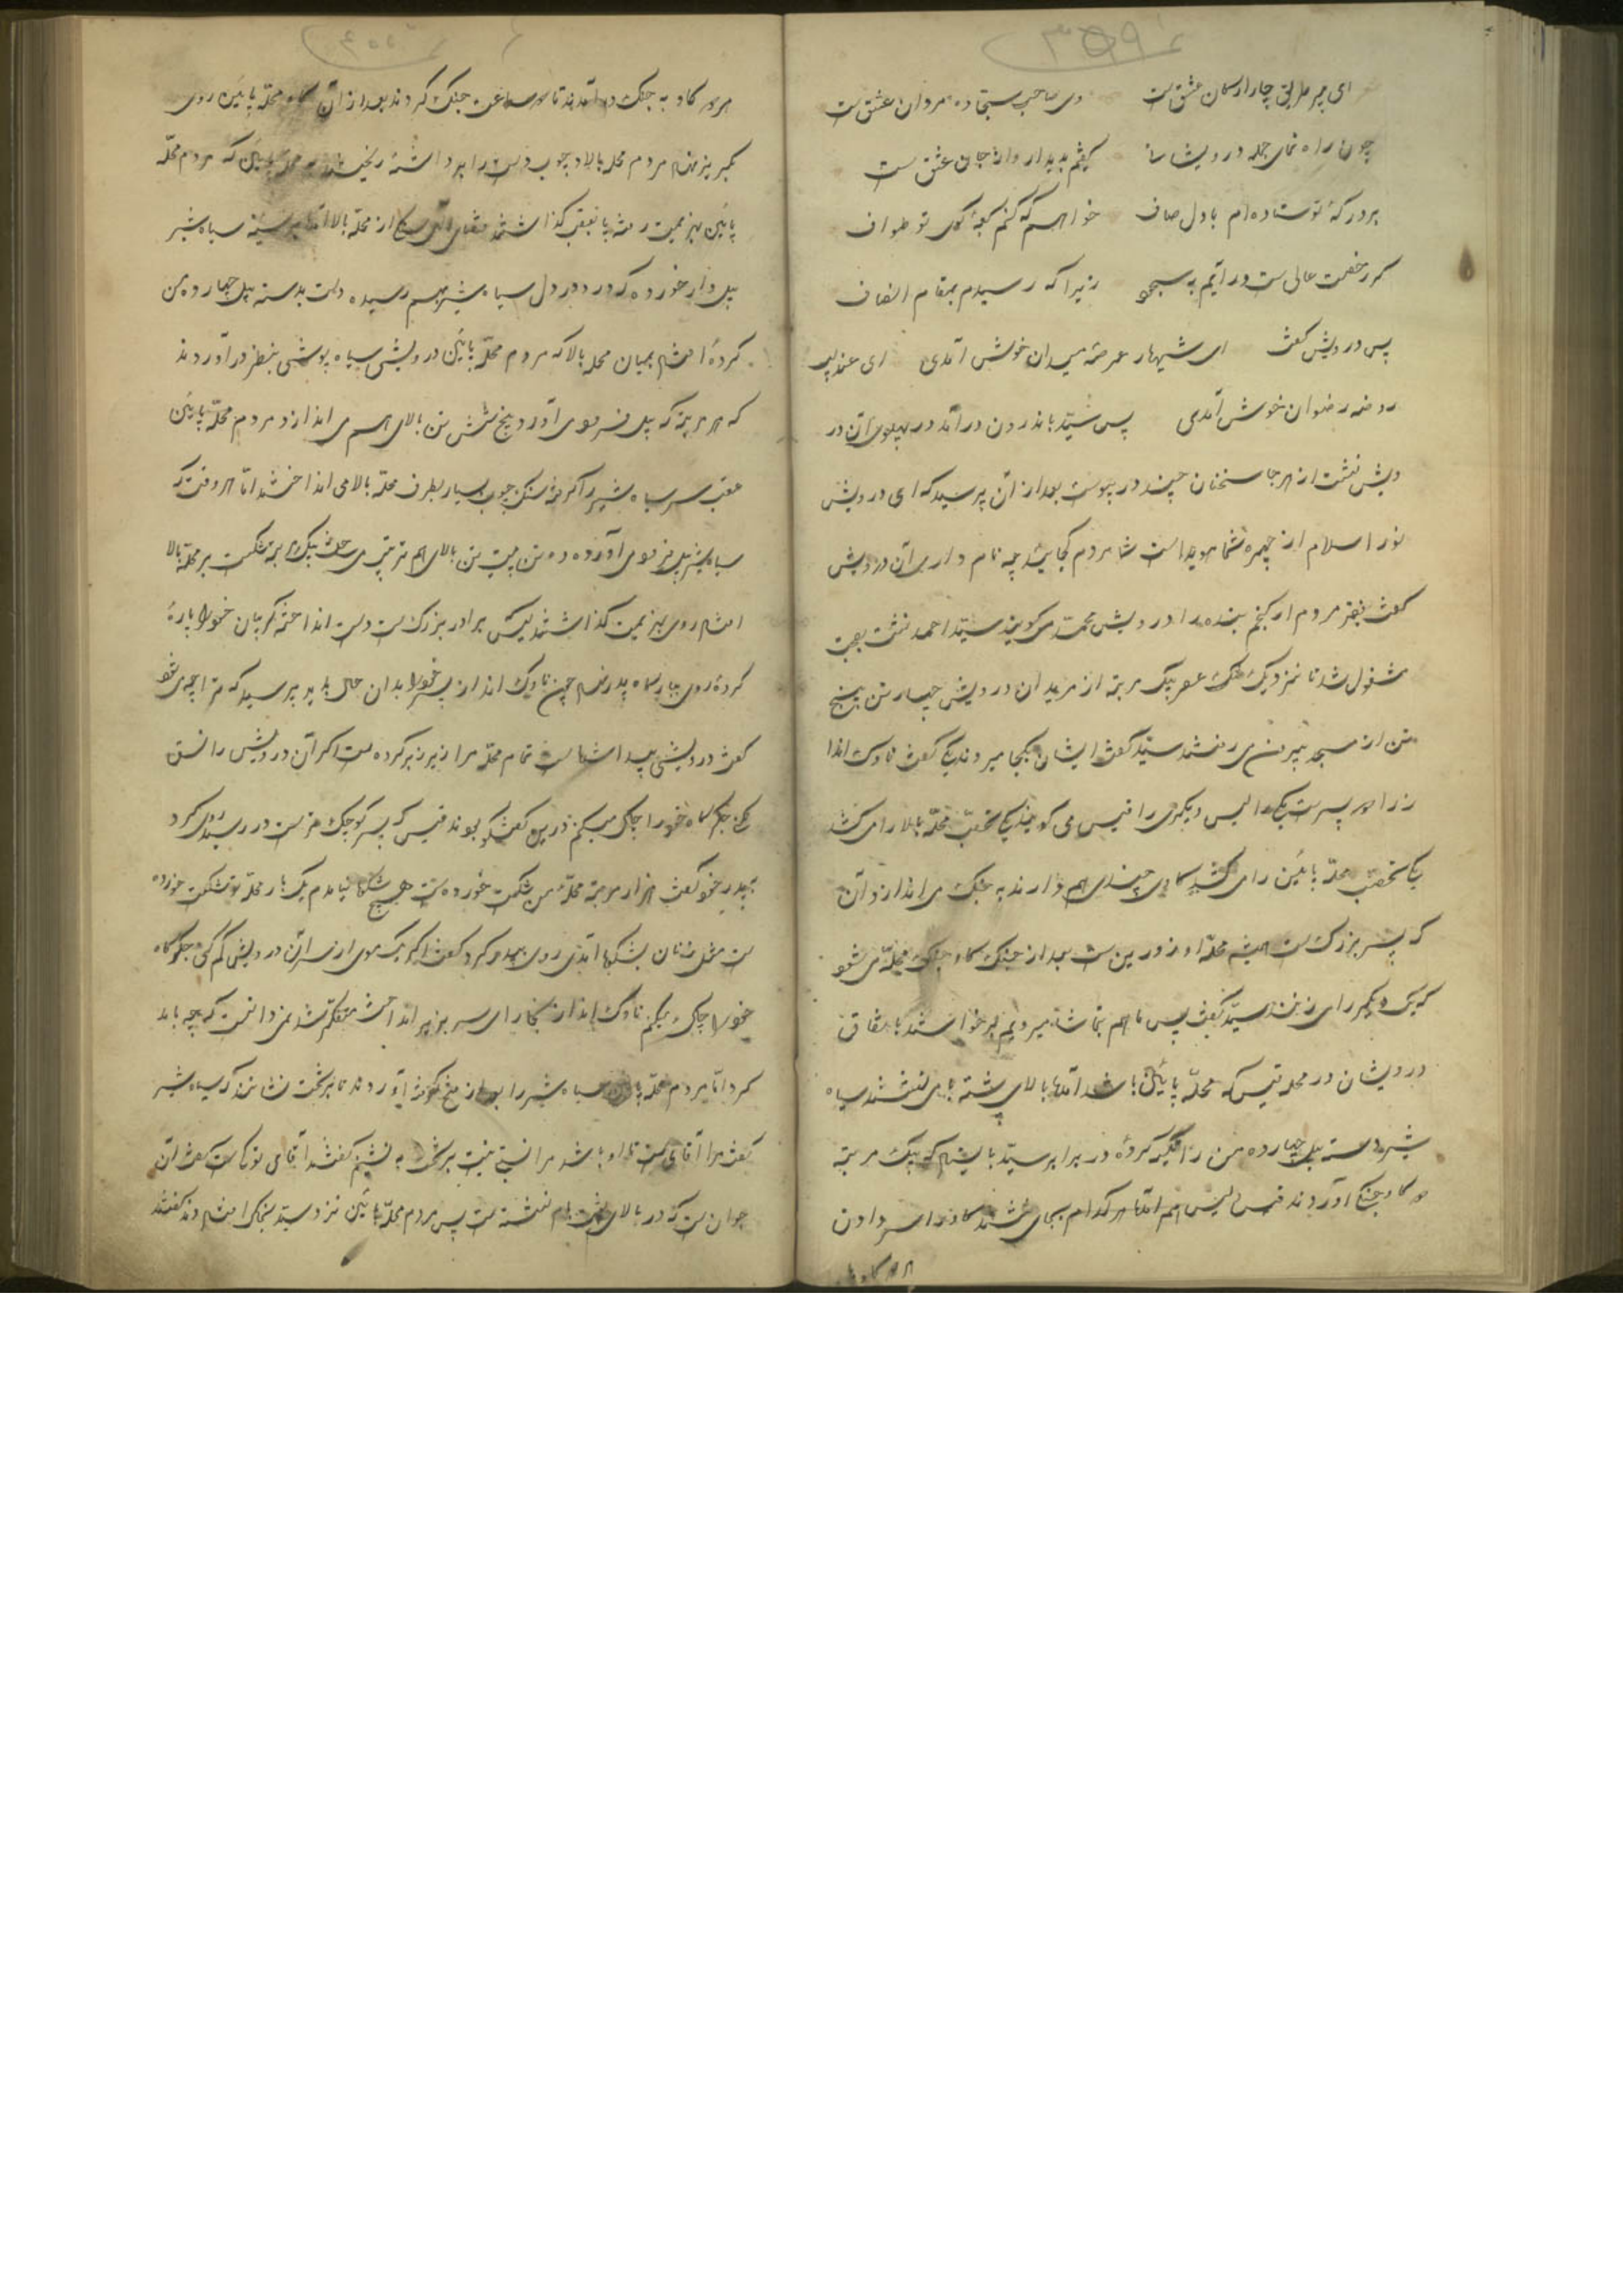 ۳۵۹
ای پیر طریق چار ارکان عشق ست وی صاحب سجاده مردان عشق ست
چون راه نمای جمله درویشان بدیدار جای عشق ست
بر درکهٔ تو ستاده‌ام با دل صاف خواهم که کنم کعبهٔ کوی تو طواف
کر رخصت عالی ست در آیم به سجود زیرا که رسیدم بمقام انصاف
پس درویش کفت ای شهباز عرصهٔ میدان خوش آمدی ای عندلیب
روضه رضوان خوش آمدی پس سید باندرون درآمد در پهلوی آن در
ویش نشت از هر جا سخنان چند در پیوست بعد از آن پرسید که ای درویش
نور اسلام از چهره شما هویدا است شما مردم کجایید چه نام داری آن درویش
کفت فقیر مردم ارکنجم بنده را درویش محمد می کویند سید احمد نشت بصحبت
مشغول شد تا نزدیک عصر بیک مرتبه از مریدان درویش چهار تن پنج
تن از مسجد بیرون می رفتند سید کفت ایشان بکجا میروند کفت ناوک اندا
ز را دو پسر ست یکی را الیس دیکری را قیس می کویند یکی تعصب محله بالا را می کشد
یکی تعصب محله پائین را می کشد کاوی چند هم دارند به جنک می اندازد آن
که پسر بزرک ست همیشه محله او زورین ست بعد از جنک کاو جنک محله می شود
که یک دیکر را می زنند سید کفت پس ما هم بتماشا میرویم برخواستند باتفاق
درویشان در محله قیس که محله پائین باشد آمدند بالای پشته بام نشستند سیاه
شیر دسته بیل چهارده من را تکیه کرده در برابر سید بایستاد که بیک مرتبه
دو کاو جنکی آوردند قیس الیس هم آمدند هر کدام بجای نشستند کاو را سر دادن
هر دو کاو
۴۰۰
هر دو کاو به جنک در آمدند تا دو ساعت جنک کردند بعد از آن کاو محله پائین روی
بکریز نهاد مردم محله بالا چوب دست را برداشته ریختند به محله پائین که مردم محله
پائین بهزیمت رفته پا بعقب کذاشتند از محله بالا آمد بر سینه سیاه شیر
بیل وار خورده که درد در دل سیاه شیر بهم رسیده دست بدسته بیل چهارده من
کرده افتاد بمیان محله بالا که مردم محله پائین درویشی سیاه پوشی بنظر درآوردند
که هر مرتبه که بیل فرود می آورد پنج شش تن بالای هم می اندازد مردم محله پائین
عقب سر سیاه شیر را کرفته سنک چوب بسیار بطرف محله بالا می انداختند اما هر وقت که
سیاه شیر بیل فرود می آورد ده تن بیست تن بالای هم می ساخت بیک مرتبه شکست بر محله بالا
افتاد روی بهزیمت کذاشتند الیس برادر بزرک ست دست انداخته کریبان خود را پاره
کرده روی ببارکاه پدر نهاد چون ناوک انداز پسر خود را بدان حال بدید پرسید که ترا چه می شود
کفت درویشی پیدا شده است تمام محله مرا زیر زبر کرده ست اکر آن درویش را نسق
کنی خوب والا خود را چاک میکنم درین کفتکو بودند قیس که پسر کوچک تر ست در رسید روی کرد
به پدر خود کفت هزار مرتبه محله من شکست خورده ست هیچ شکوا نیامدم یک بار محله تو شکست خورده
ست مثل زنان بشکوا آمدی روی به پدر کرد کفت اکر یک موی از سر آن درویش کم کنی جکرکاه
خود را چاک میکنم ناوک انداز بیچاره سر بزیر انداخت متفکر شد نمی دانست که چه باید
کرد اما مردم محله پائین سیاه شیر را بعد از فتح آوردند تا بر تخت نشانند که سیاه شیر
کفت مرا آقای ست تا او باشد مرا نسبتی نیست بر تخت به نشینم کفتند آقای تو کجاست کفت آن
جوان ست که در بالای پشت بام نشسته ست پس مردم محله پائین نزد سید بخاک افتادند کفتند